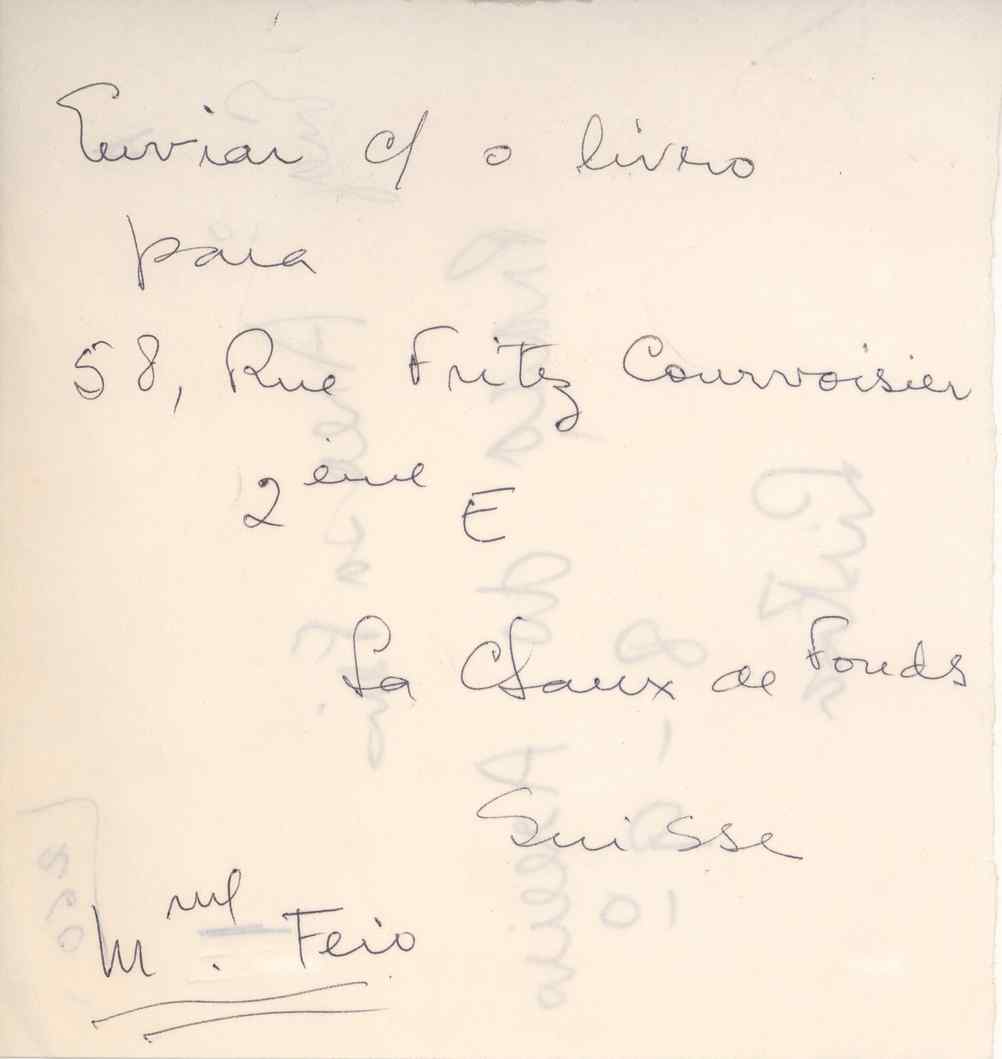 Enviar c/ o livro
para
58, Rue Fritz Courvoisier
2ème E
La Chaux de Fonds
Suisse
Mme. Feio